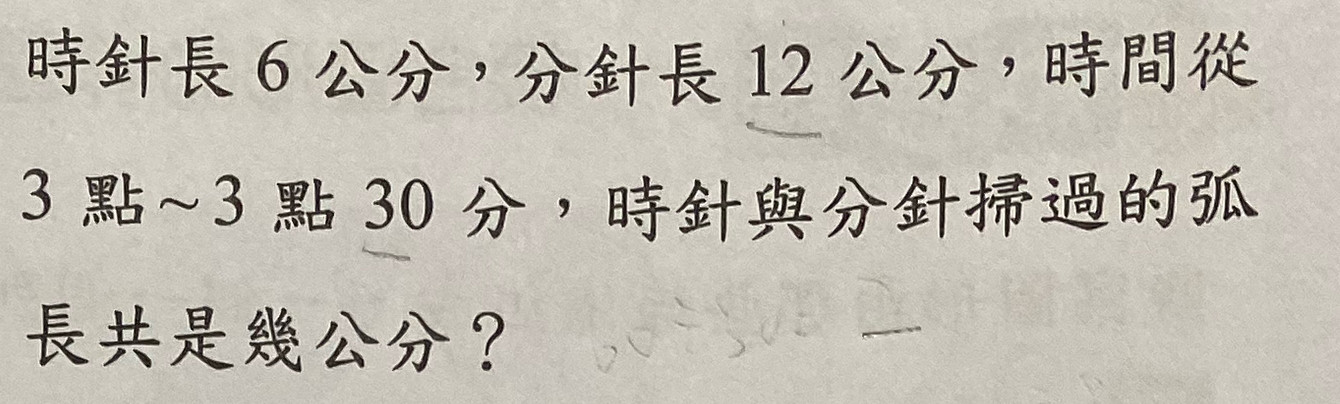 時針長 6 公分，分針長 12 公分，時間從
3 點~3 點 30 分，時針與分針掃過的弧
長共是幾公分？